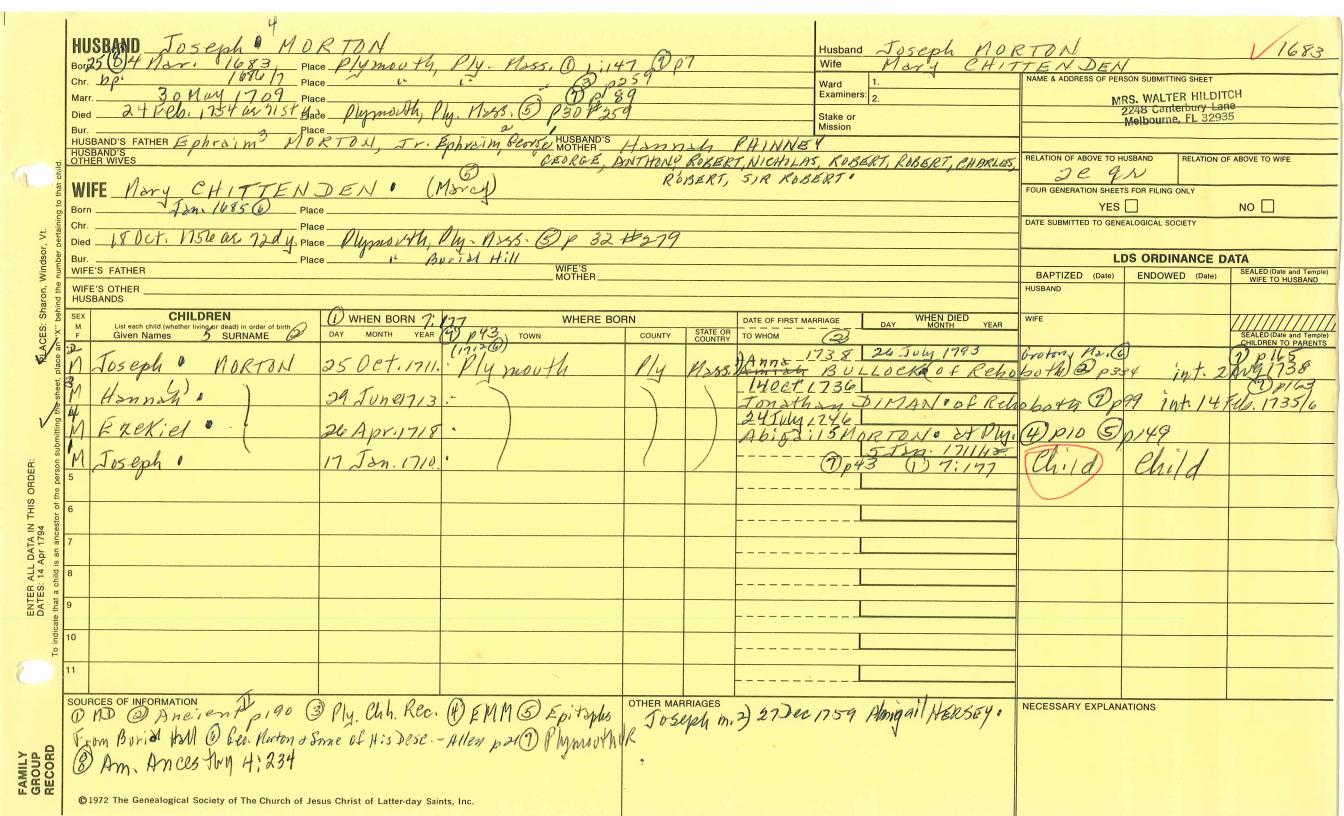 4
HUSBAND Joseph MORTON
Born 25 (8) 4 Mar. 1683 Place Plymouth, Ply. Mass. (1) 1:147 (7) p7
Chr. bp. 1686/7 Place " " (3) p259
Marr. 30 May 1709 Place (7) p 89
Died 24 Feb. 1754 ae 71st y. Place Plymouth, Ply. Mass. (5) p30 # 259
Bur. Place
HUSBAND'S FATHER Ephraim 3 MORTON, Jr. Ephraim, 2 George 1 HUSBAND'S MOTHER Hannah PHINNEY
HUSBAND'S OTHER WIVES GEORGE, ANTHONY, ROBERT, NICHOLAS, ROBERT, ROBERT, CHARLES,
ROBERT, SIR ROBERT.
WIFE Mary CHITTENDEN. (Marcy) (6)
Born Jan. 1685 (6) Place
Chr. Place
Died 18 Oct. 1756 ae 72d y. Place Plymouth, Ply. Mass. (5) p 32 #279
Bur. Place " Burial Hill
WIFE'S FATHER WIFE'S MOTHER
WIFE'S OTHER HUSBANDS
Husband Joseph MORTON ✓ 1683
Wife Mary CHITTENDEN
Ward Examiners: 1.
2.
Stake or Mission
NAME & ADDRESS OF PERSON SUBMITTING SHEET
MRS. WALTER HILDITCH
2248 Canterbury Lane
Melbourne, FL 32935
RELATION OF ABOVE TO HUSBAND RELATION OF ABOVE TO WIFE
FOUR GENERATION SHEETS FOR FILING ONLY
YES NO
DATE SUBMITTED TO GENEALOGICAL SOCIETY
LDS ORDINANCE DATA
BAPTIZED (Date) ENDOWED (Date) SEALED (Date and Temple) WIFE TO HUSBAND
HUSBAND
WIFE
SEALED (Date and Temple) CHILDREN TO PARENTS
SEX M F CHILDREN (1) WHEN BORN 7:177 WHERE BORN DATE OF FIRST MARRIAGE WHEN DIED
List each child (whether living or dead) in order of birth
Given Names 5 SURNAME (2) DAY MONTH YEAR (7) p43 TOWN COUNTY STATE OR COUNTRY TO WHOM (2) DAY MONTH YEAR
(1712 (6))
2 M Joseph MORTON 25 Oct. 1711. Plymouth Ply Mass. 1738 26 July 1793 Groton, Ma. (6) (7) p165
Anna BULLOCK (of Rehoboth) (2) p334 int. 2 Aug 1738
3 M Hannah 29 June 1713 14 OCT 1736 (7) p163
Jonathan DIMAN of Rehoboth (7) p99 int. 14 Feb. 1735/6
4 M Ezekiel 26 Apr. 1718 24 July 1746
Abigail MORTON at Ply. (4) p10 (5) p149
1 M Joseph 17 Jan. 1710. 5 Jan. 1711/12
(7) p43 (1) 7:177 Child Child
5
6
7
8
9
10
11
SOURCES OF INFORMATION
(1) MD (2) Ancient p190 (3) Ply. Chh. Rec. (4) EMM (5) Epitaphs
From Burial Hill (6) Geo. Morton & Some of His Desc. - Allen p21 (7) Plymouth VR
(8) Am. Ancestry 4:234
OTHER MARRIAGES
Joseph m. 2) 27 Dec 1759 Abigail HERSEY.
NECESSARY EXPLANATIONS
©1972 The Genealogical Society of The Church of Jesus Christ of Latter-day Saints, Inc.
PLACES: Sharon, Windsor, Vt.
To indicate that a child is an ancestor of the person submitting the sheet, place an "X" behind the number pertaining to that child.
ENTER ALL DATA IN THIS ORDER:
DATES: 14 Apr 1794
FAMILY GROUP RECORD